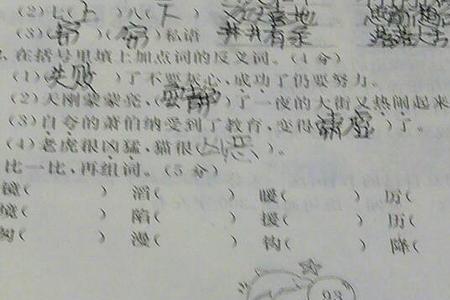 (2)七(上)八(下)
(3)(窃)(窃)私语 井井有条
在括号里填上加点词的反义词。(4分)
(1)(失败)了不要灰心,成功了仍要努力。
(2)天刚蒙蒙亮,(安静)了一夜的大街又热闹起来
(3)自夸的萧伯纳受到了教育,变得(谦虚)了。
(4)老虎很凶猛,猫很( )。
比一比,再组词。(5分)
镜( ) 滔( ) 暖( ) 厉( )
境( ) 陷( ) 援( ) 历( )
( ) 漫( ) 钩( ) 降(
93